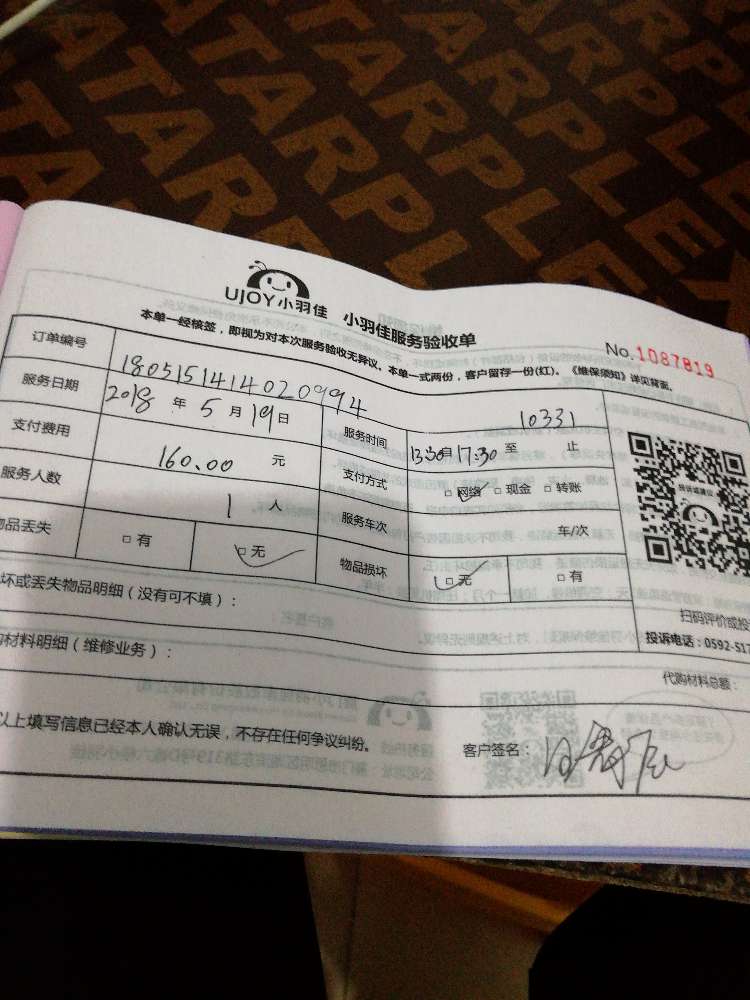 TARPLEX
UJOY小羽佳 小羽佳服务验收单
No.1087819
本单一经核签，即视为对本次服务验收无异议。本单一式两份，客户留存一份(红)。《维保须知》详见背面。
订单编号 1805151414020994 10331
服务日期 2018 年 5 月 19 日 服务时间 13:30 17:30 至 止
支付费用 160.00 元 支付方式 □ 网络 □ 现金 □ 转账
服务人数 1 人 服务车次 年/次
品丢失 □ 有 □ 无 物品损坏 □ 无 □ 有
扫码评价或投
投诉电话：0592-517
坏或丢失物品明细（没有可不填）：
材料明细（维修业务）： 代购材料总额：
以上填写信息已经本人确认无误，不存在任何争议纠纷。 客户签名：